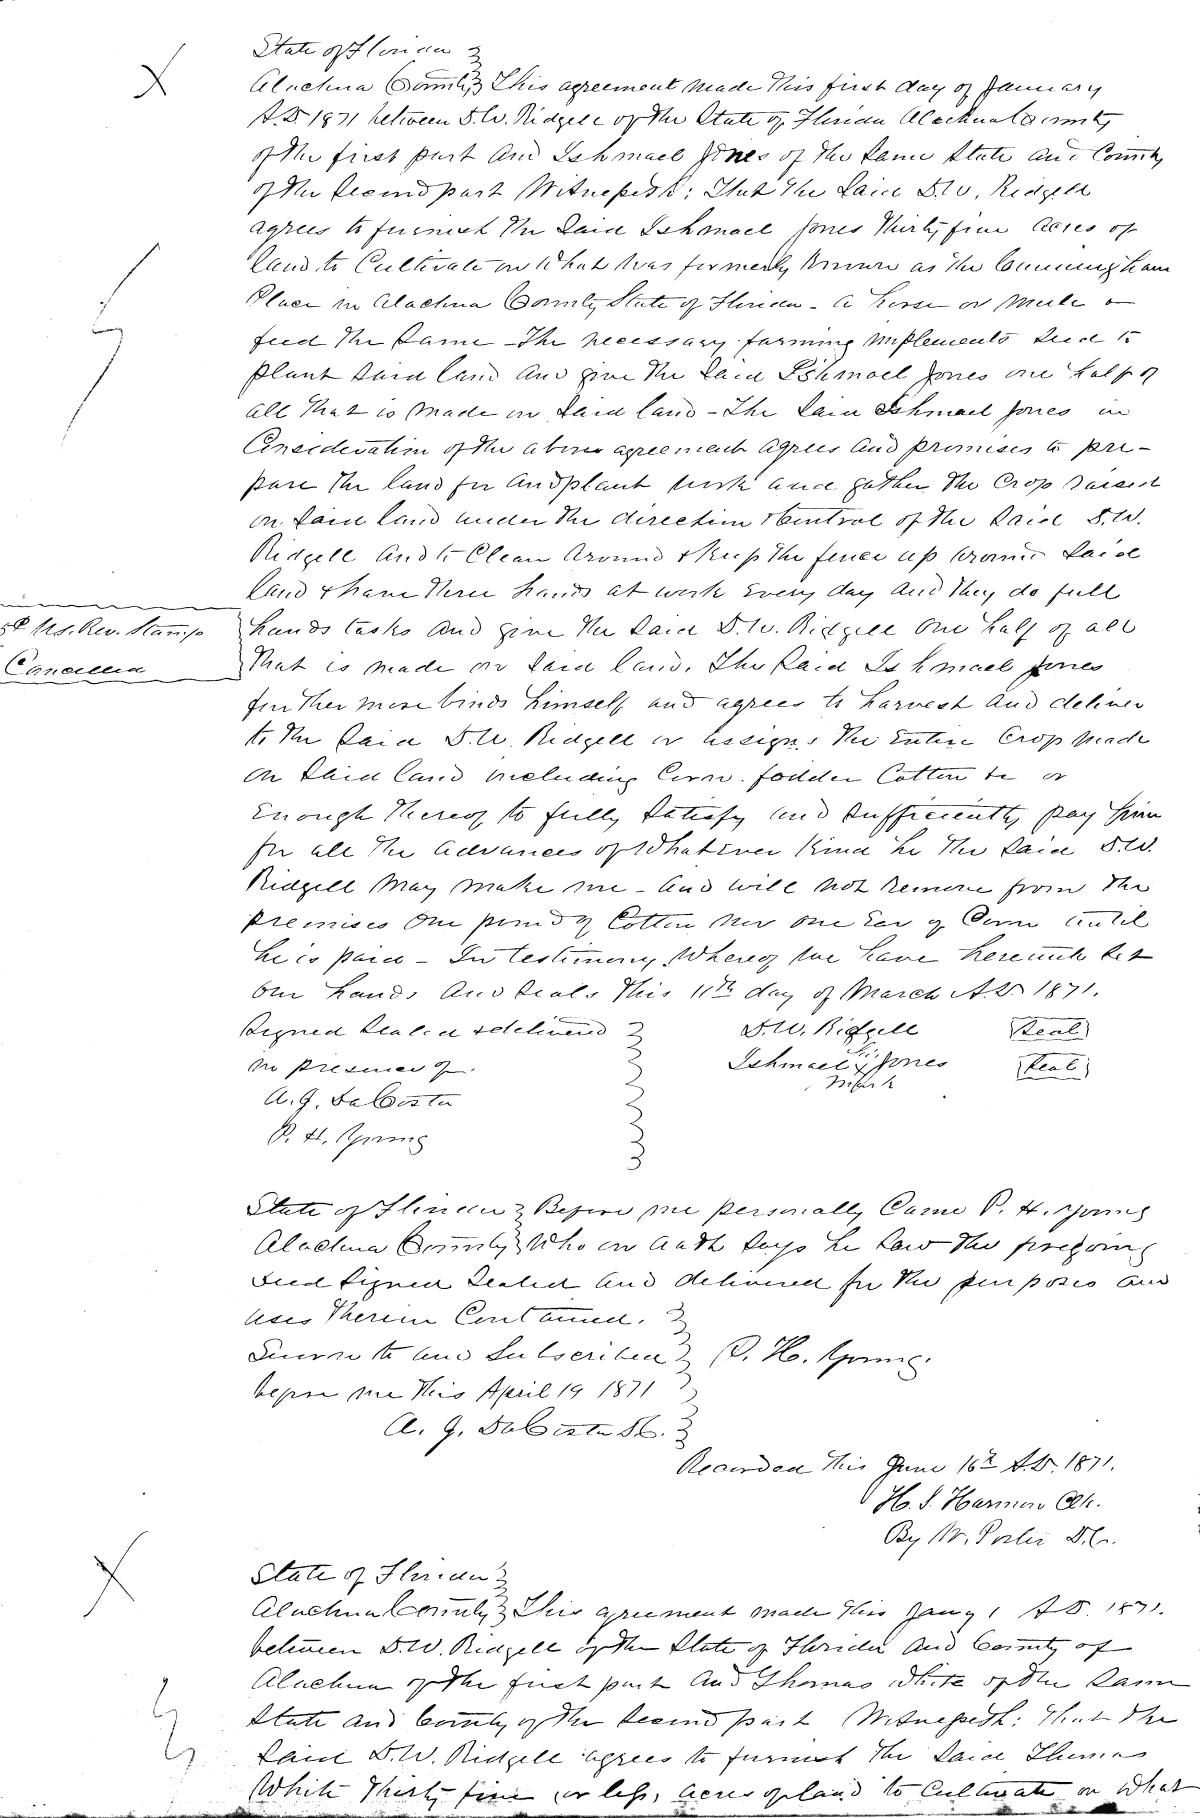 State of Florida }
Alachua County } This agreement made this first day of January
A.D 1871 between D.W. Ridgell of the State of Florida Alachua County
of the first part and Ishmael Jones of the Same State and County
of the Second part Witnesseth: That the Said D.W. Ridgell
agrees to furnish the Said Ishmael Jones Thirty five acres of
land to Cultivate on What was formerly Known as the Cunningham
Place in Alachua County State of Florida - a horse or mule &
feed the Same - The necessary farming implements Seed to
plant Said land and give the Said Ishmael Jones one half of
all that is made on Said land - The Said Ishmael Jones in
Consideration of the above agreement agrees and promises to pre-
pare the land for and plant work and gather the Crop raised
on Said land under the direction & Control of the Said D.W.
Ridgell and to Clean around & Keep the fence up around Said
land & have three hands at work Every day and they do full
hands tasks and give the Said D.W. Ridgell One half of all
5¢ U.S. Rev. Stamp
Cancelled
that is made on Said land. The Said Ishmael Jones
furthermore binds himself and agrees to harvest and deliver
to the Said D.W. Ridgell or assigns the Entire Crop made
on Said land including Corn. fodder Cotton &c or
Enough thereof to fully Satisfy and Sufficiently pay him
for all the advances of Whatever Kind he the Said D.W.
Ridgell May make me - and will not Remove from the
premises One pound of Cotton nor one Ear of Corn until
he is paid - In testimony Whereof we have hereunto Set
our hands and Seals this 11th day of March A.D. 1871.
Signed Sealed & delivered } D.W. Ridgell (Seal)
in presence of. Ishmael his x mark Jones (Seal)
A. J. DaCosta
P. H. Young
State of Florida } Before me personally Came P. H. Young
Alachua County } Who on oath Says he Saw the foregoing
deed Signed Sealed and delivered for the purposes and
uses therein Contained.
Sworn to and Subscribed } P. H. Young.
before me this April 19 1871
A. J. DaCosta D.C. }
Recorded this June 16th A.D. 1871.
H. S. Harmon Clk.
By W. Porter D.C.
State of Florida }
Alachua County } This agreement made this Jany 1 A.D. 1871.
between D.W. Ridgell of the State of Florida and County of
Alachua of the first part and Thomas White of the Same
State and County of the Second part Witnesseth: That the
Said D.W. Ridgell agrees to furnish the Said Thomas
White Thirty five, or less, acres of land to Cultivate on What